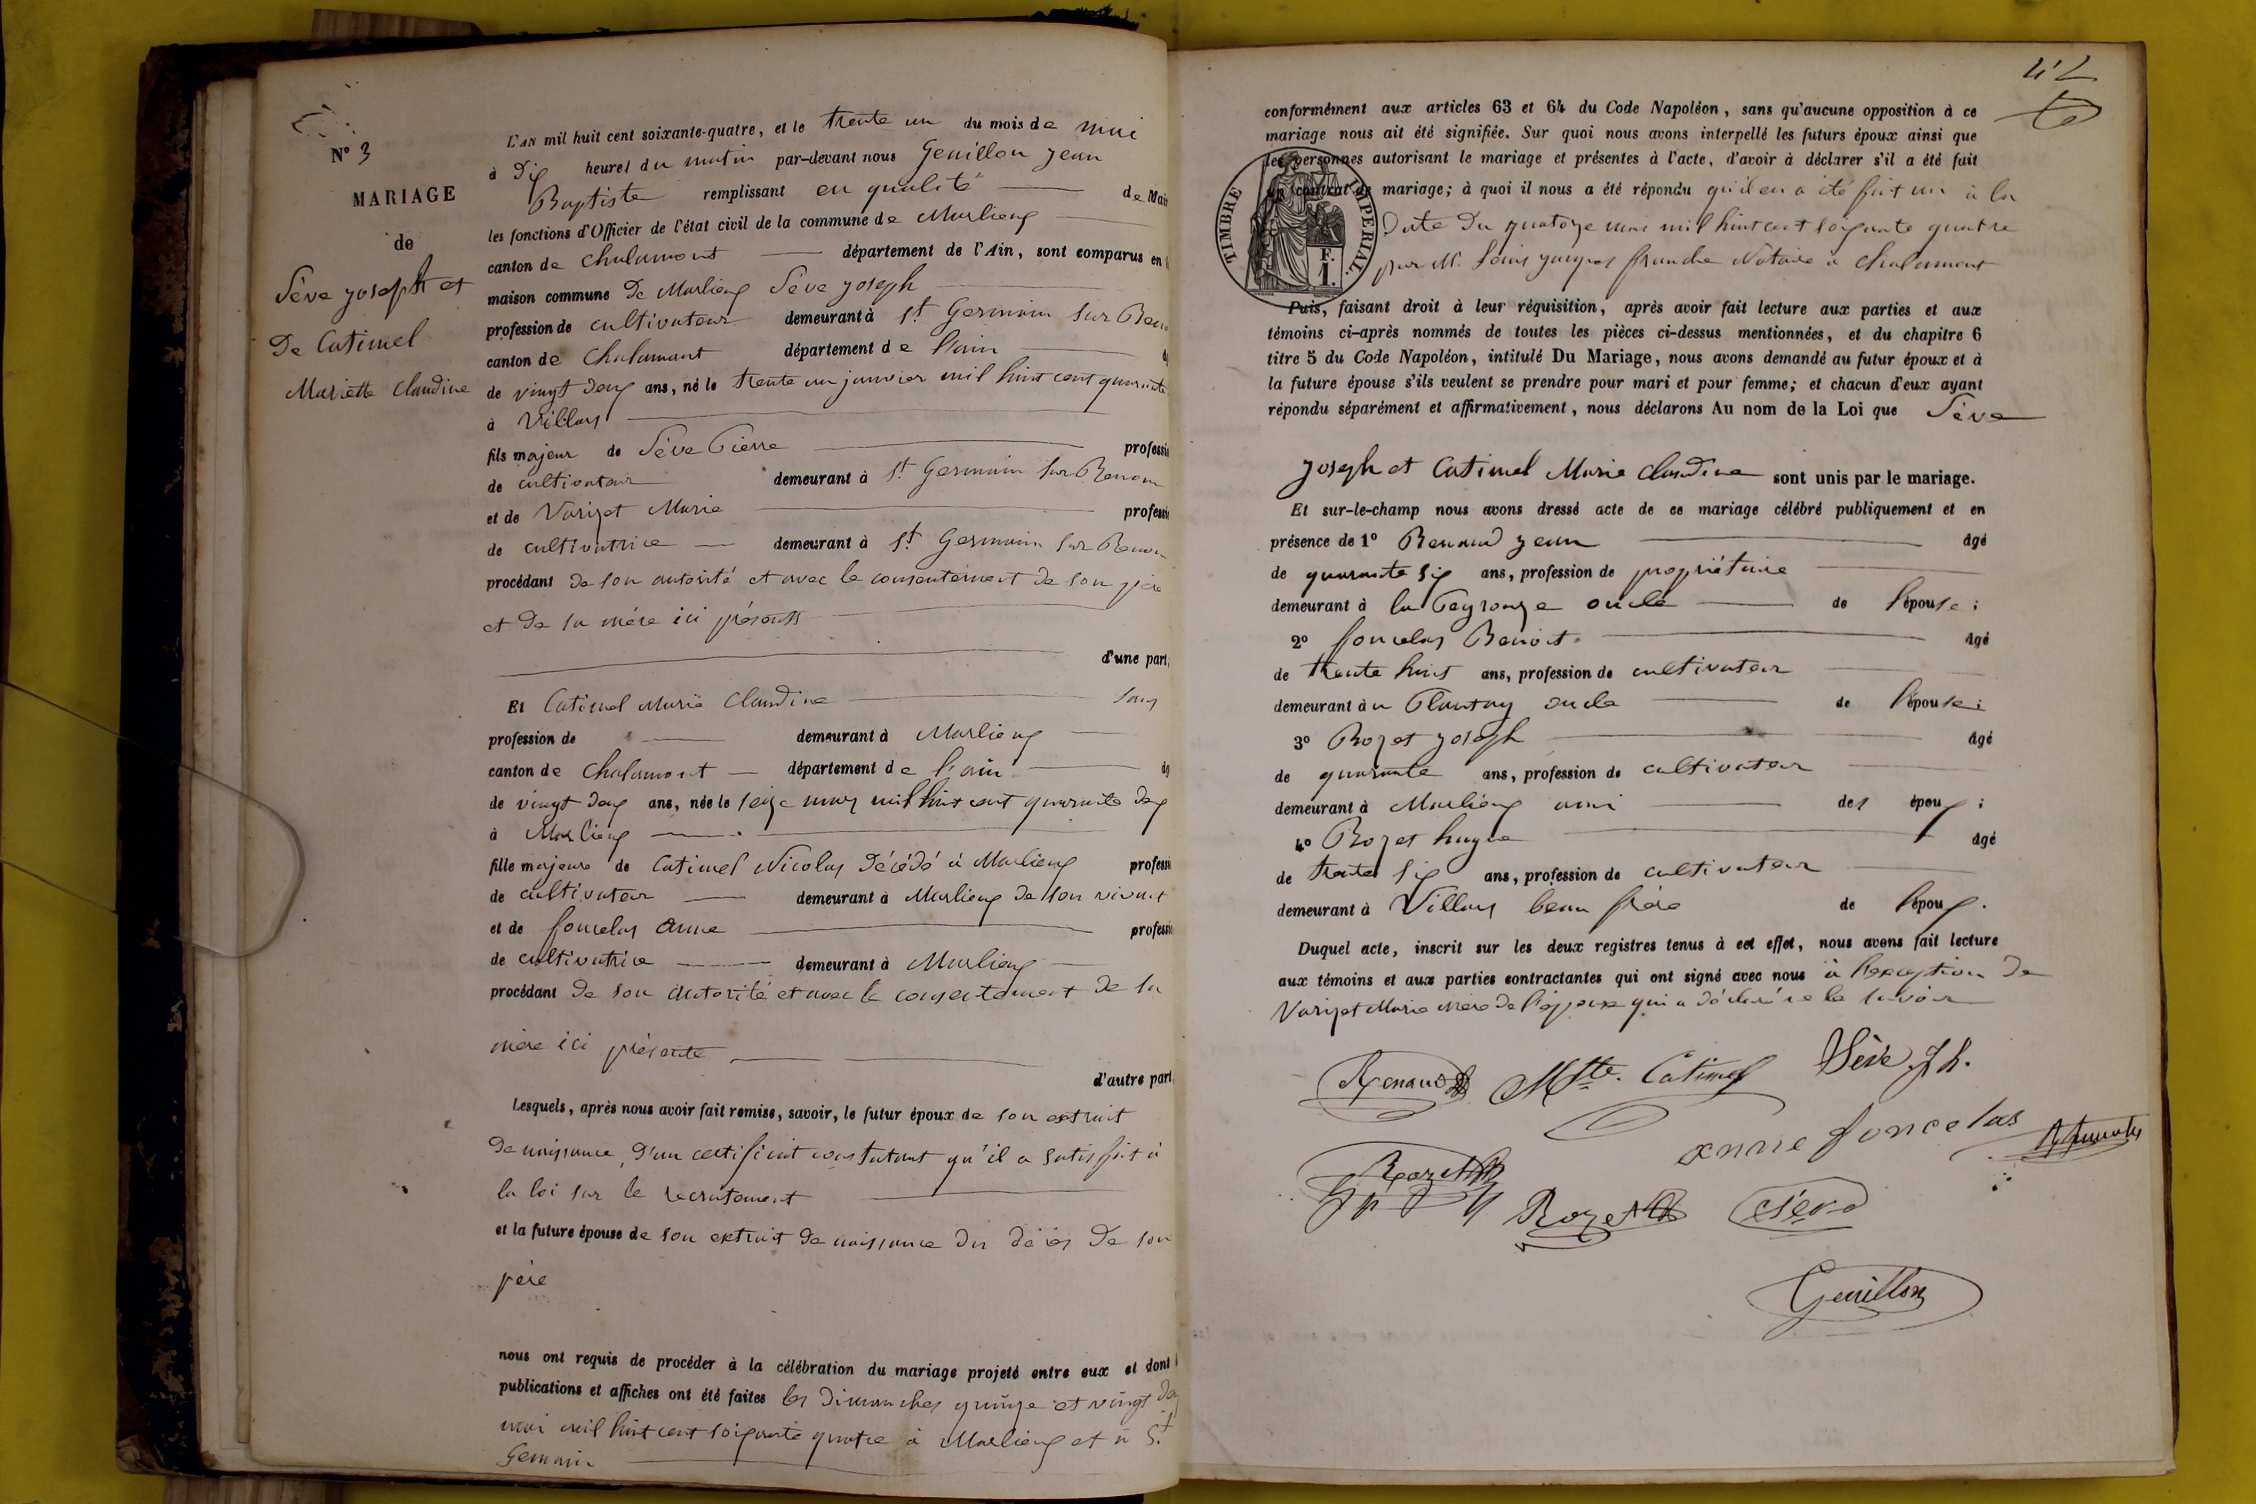 N° 3
MARIAGE
de
Sève joseph et
De Catimel
Mariette Claudine
L'AN mil huit cent soixante-quatre, et le trente un du mois de mai
à dix heures du matin par-devant nous Genillon jean
Baptiste remplissant en qualité de Mair
les fonctions d'Officier de l'état civil de la commune de Marlieux
canton de Chalamont département de l'Ain, sont comparus en l
maison commune de Marlieux Sève joseph
profession de cultivateur demeurant à St Germain sur Reno
canton de Chalamont département de l'ain
de vingt deux ans, né le trente un janvier mil huit cent quarante
à Villars
fils majeur de Sève Pierre professi
de cultivateur demeurant à St Germain sur Renom
et de Varizet Marie professi
de cultivatrice demeurant à St Germain sur Renom
procédant de son autorité et avec le consentement de son père
et de sa mère ici présents
d'une part,
Et Catimel Marie Claudine sans
profession de demeurant à Marlieux
canton de Chalamont département de l'ain
de vingt deux ans, née le seize mars mil huit cent quarante deux
à Marlieux
fille majeure de Catimel Nicolas décédé à Marlieux professi
de cultivateur demeurant à Marlieux de son vivant
et de foncelas Anne professi
de cultivatrice demeurant à Marlieux
procédant de son autorité et avec le consentement de sa
mère ici présente
d'autre part,
Lesquels, après nous avoir fait remise, savoir, le futur époux de son extrait
de naissance, d'un certificat constatant qu'il a satisfait à
la loi sur le recrutement
et la future épouse de son extrait de naissance du décès de son
père
nous ont requis de procéder à la célébration du mariage projeté entre eux et dont
publications et affiches ont été faites les dimanches quinze et vingt deux
mai mil huit cent soixante quatre à Marlieux et à St
Germain
conformément aux articles 63 et 64 du Code Napoléon, sans qu'aucune opposition à ce
mariage nous ait été signifiée. Sur quoi nous avons interpellé les futurs époux ainsi que
les personnes autorisant le mariage et présentes à l'acte, d'avoir à déclarer s'il a été fait
un contrat de mariage; à quoi il nous a été répondu qu'il en a été fait un à la
date du quatorze mai mil huit cent soixante quatre
par Mr. Louis jacques franche Notaire à Chalamont
TIMBRE IMPERIAL.
F.
1.
Puis, faisant droit à leur réquisition, après avoir fait lecture aux parties et aux
témoins ci-après nommés de toutes les pièces ci-dessus mentionnées, et du chapitre 6
titre 5 du Code Napoléon, intitulé Du Mariage, nous avons demandé au futur époux et à
la future épouse s'ils veulent se prendre pour mari et pour femme; et chacun d'eux ayant
répondu séparément et affirmativement, nous déclarons Au nom de la Loi que Sève
joseph et Catimel Marie Claudine sont unis par le mariage.
Et sur-le-champ nous avons dressé acte de ce mariage célébré publiquement et en
présence de 1° Renaud jean âgé
de quarante six ans, profession de propriétaire
demeurant à la Peyrouze oncle de l'épouse;
2° foncelas Benoit âgé
de trente huit ans, profession de cultivateur
demeurant à u Plantay oncle de l'épouse;
3° Rozet joseph âgé
de quarante ans, profession de cultivateur
demeurant à Marlieux ami des époux;
4° Rozet hugue âgé
de trente six ans, profession de cultivateur
demeurant à Villars beau frère de l'époux.
Duquel acte, inscrit sur les deux registres tenus à cet effet, nous avons fait lecture
aux témoins et aux parties contractantes qui ont signé avec nous à l'exception de
Varizet Marie mère de l'époux qui a déclaré ne le savoir
Renaud Mtte. Catimel Sève Jh.
anne foncelas
Rozet
Rozet Sève
Genillon